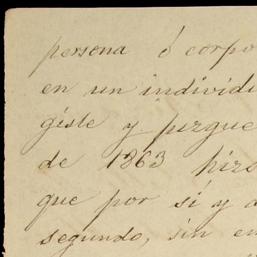 persona ó corpo
en un individu
giste y juzgue
de 1863 hizo
que por sí y a
segundo, sin en